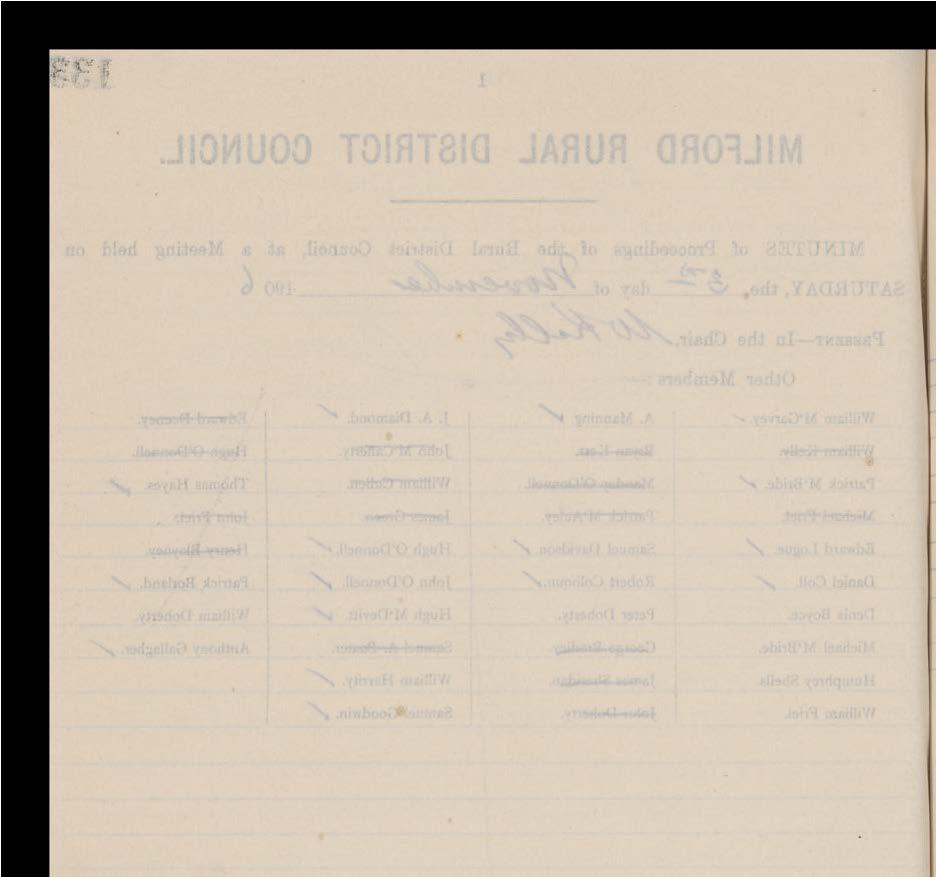 133
1
MILFORD RURAL DISTRICT COUNCIL.
MINUTES of Proceedings of the Rural District Council, at a Meeting held on
SATURDAY, the, 3rd day of November 1906
PRESENT—In the Chair, W Kelly
Other Members :—
William M'Garvey. A. Manning J. A. Diamond. Edward Deeney.
William Kelly. Bryan Kerr. John M'Cafferty. Hugh O'Donnell.
Patrick M'Bride. Manday O'Donnell. William Cullen. Thomas Hayes.
Michael Friel. Patrick M'Auley. James Green John Friel.
Edward Logue. Samuel Davidson Hugh O'Donnell. Henry Blayney.
Daniel Coll. Robert Colhoun. John O'Donnell. Patrick Borland.
Denis Boyce. Peter Doherty. Hugh M'Devitt William Doherty.
Michael M'Bride. George Bradley Samuel A. Anthony Gallagher.
Humphrey Sheils. James Sheridan. William Harrity.
William Friel. John Doherty. Samuel Goodwin.